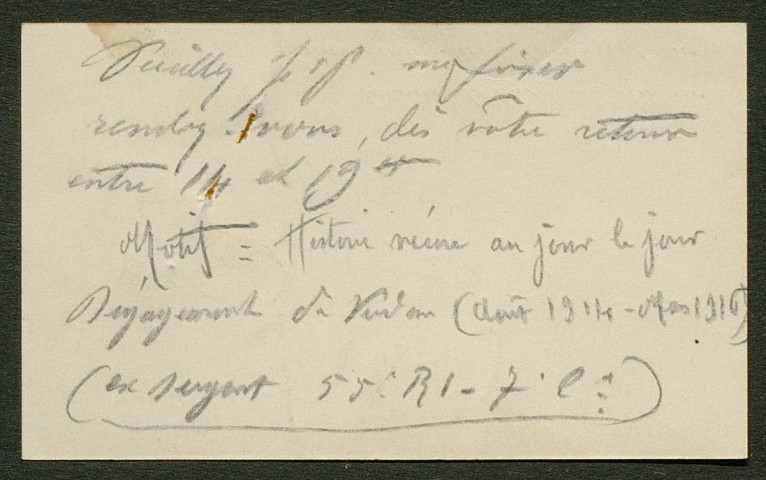 Veuillez s.v.p. me fixer
rendez-vous, dès votre retour
entre 14 et 19 H
Motif = Histoire vécue au jour le jour
Dégagement de Verdun (Août 1914 - Mars 1916)
(ex Sergent 55e RI - 7e Cie)